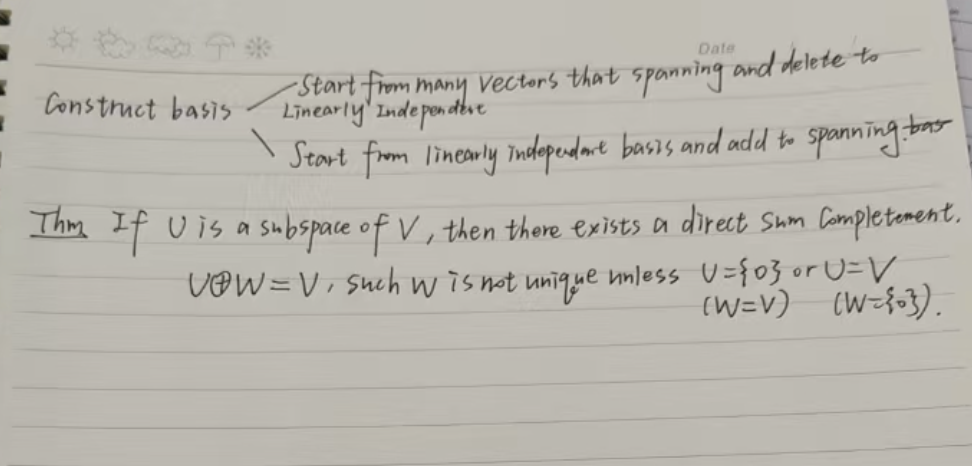 Date
Construct basis Start from many vectors that spanning and delete to
Linearly Independent
Start from linearly independent basis and add to spanning.
Thm If U is a subspace of V, then there exists a direct sum Completement.
U⊕W=V, such W is not unique unless U={0} or U=V
(W=V) (W={0}).